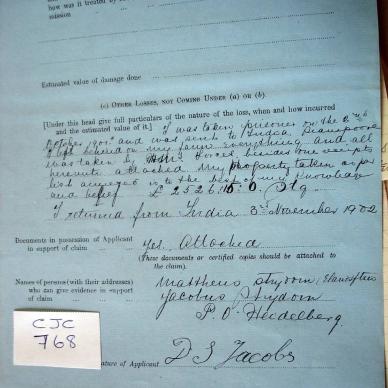 how was it treated by
mission
Estimated value of damage done
(c) OTHER LOSSES, NOT COMING UNDER (a) OR (b).
[Under this head give full particulars of the nature of the loss, when and how incurred
and the estimated value of it.] I was taken prisoner on the
October 1900 and was sent to India,
I left behind on my farm everything and all
was taken by Forces, besides four receipts
herewith attached. My property taken as per
list annexed is to the best of my knowledge
and belief £ 2526.15.0. Stg.
I returned from India 3rd November 1902
Documents in possession of Applicant
in support of claim
Yes. Attached
(These documents or certified copies should be attached to
the claim.)
Names of persons (with their addresses)
who can give evidence in support
of claim
Mattheus Strydom
Jacobus Strydom
P. O. Heidelberg.
CJC
768
nature of Applicant D S Jacobs